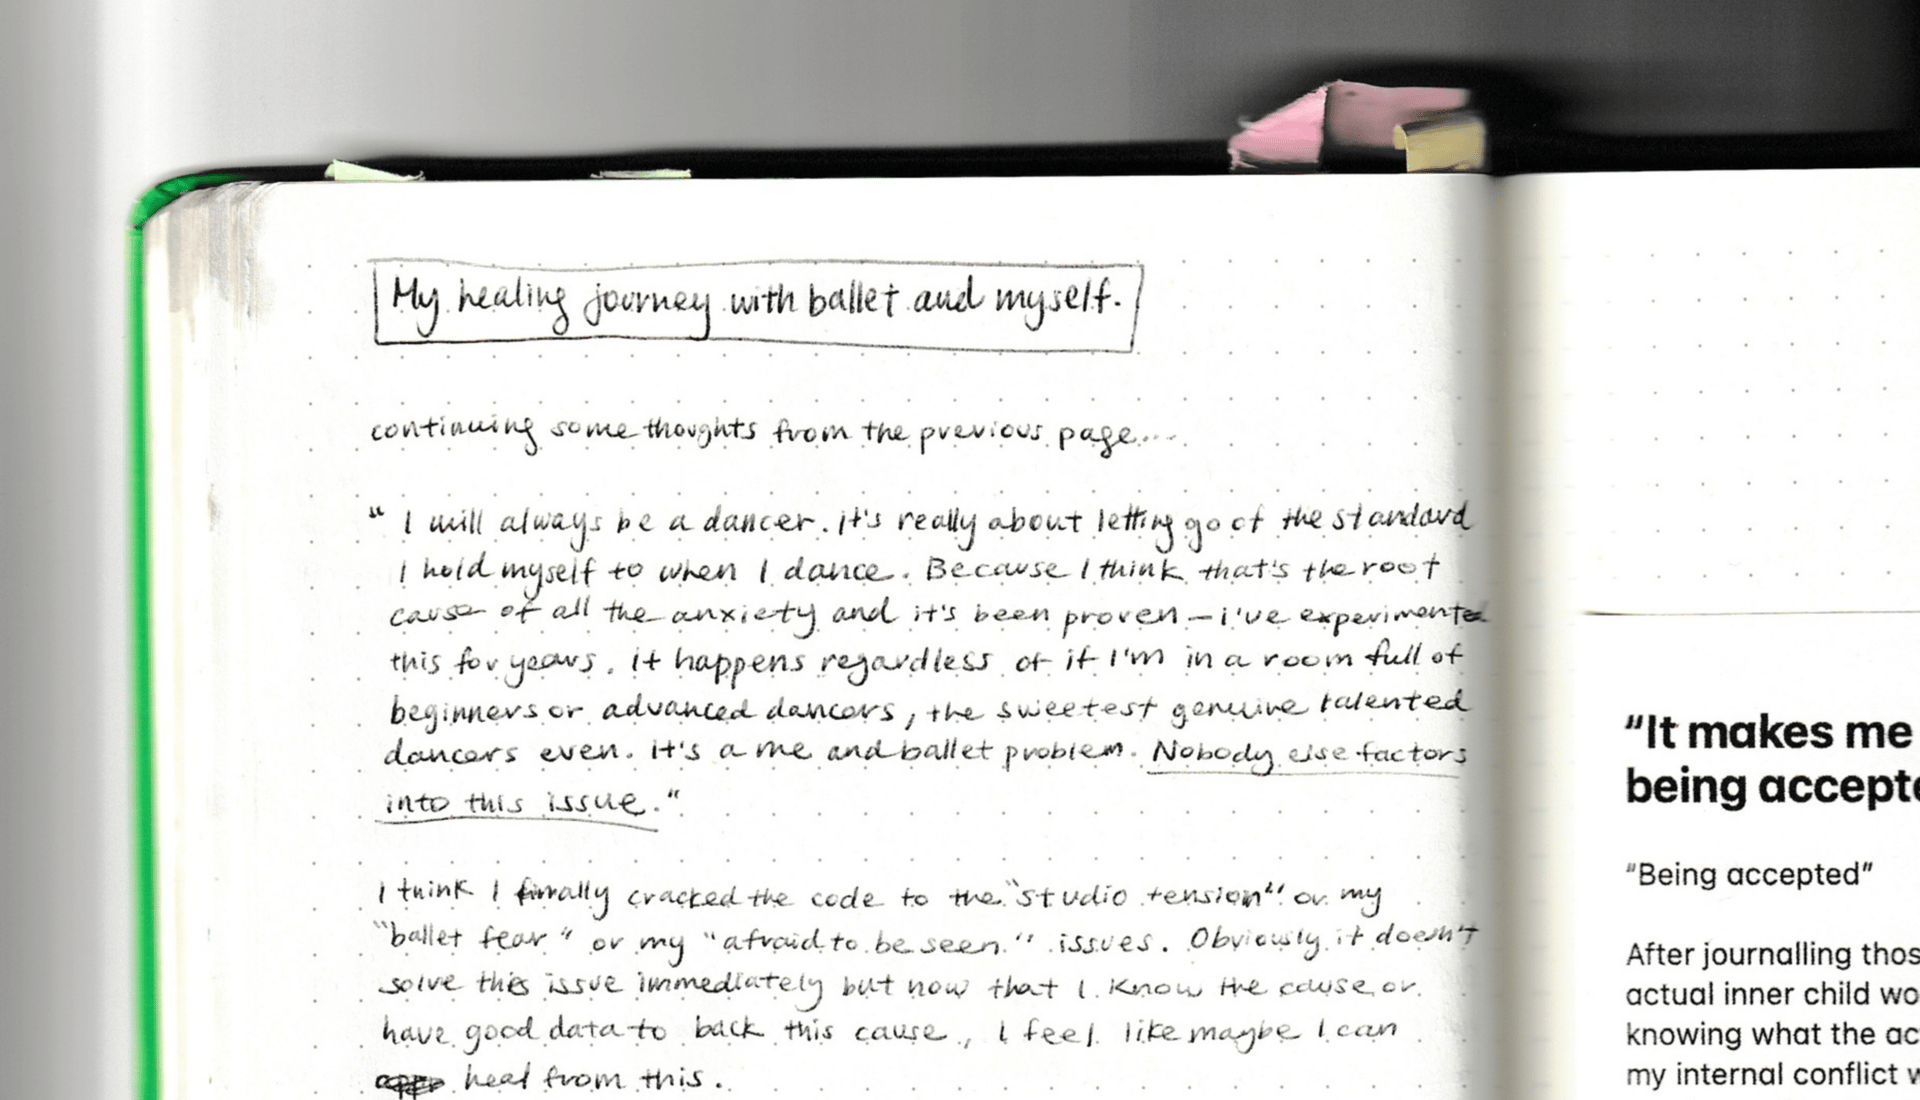 My healing journey with ballet and myself.
continuing some thoughts from the previous page...
" I will always be a dancer. it's really about letting go of the standard
I hold myself to when I dance. Because I think that's the root
cause of all the anxiety and it's been proven – i've experimented
this for years. it happens regardless of if I'm in a room full of
beginners or advanced dancers, the sweetest genuine talented
dancers even. it's a me and ballet problem. Nobody else factors
into this issue."
I think I finally cracked the code to the "studio tension" or my
"ballet fear" or my "afraid to be seen" issues. Obviously it doesn't
solve this issue immediately but now that I know the cause or
have good data to back this cause, I feel like maybe I can
heal from this.
"It makes me
being accepte
"Being accepted"
After journalling thos
actual inner child wo
knowing what the ac
my internal conflict w